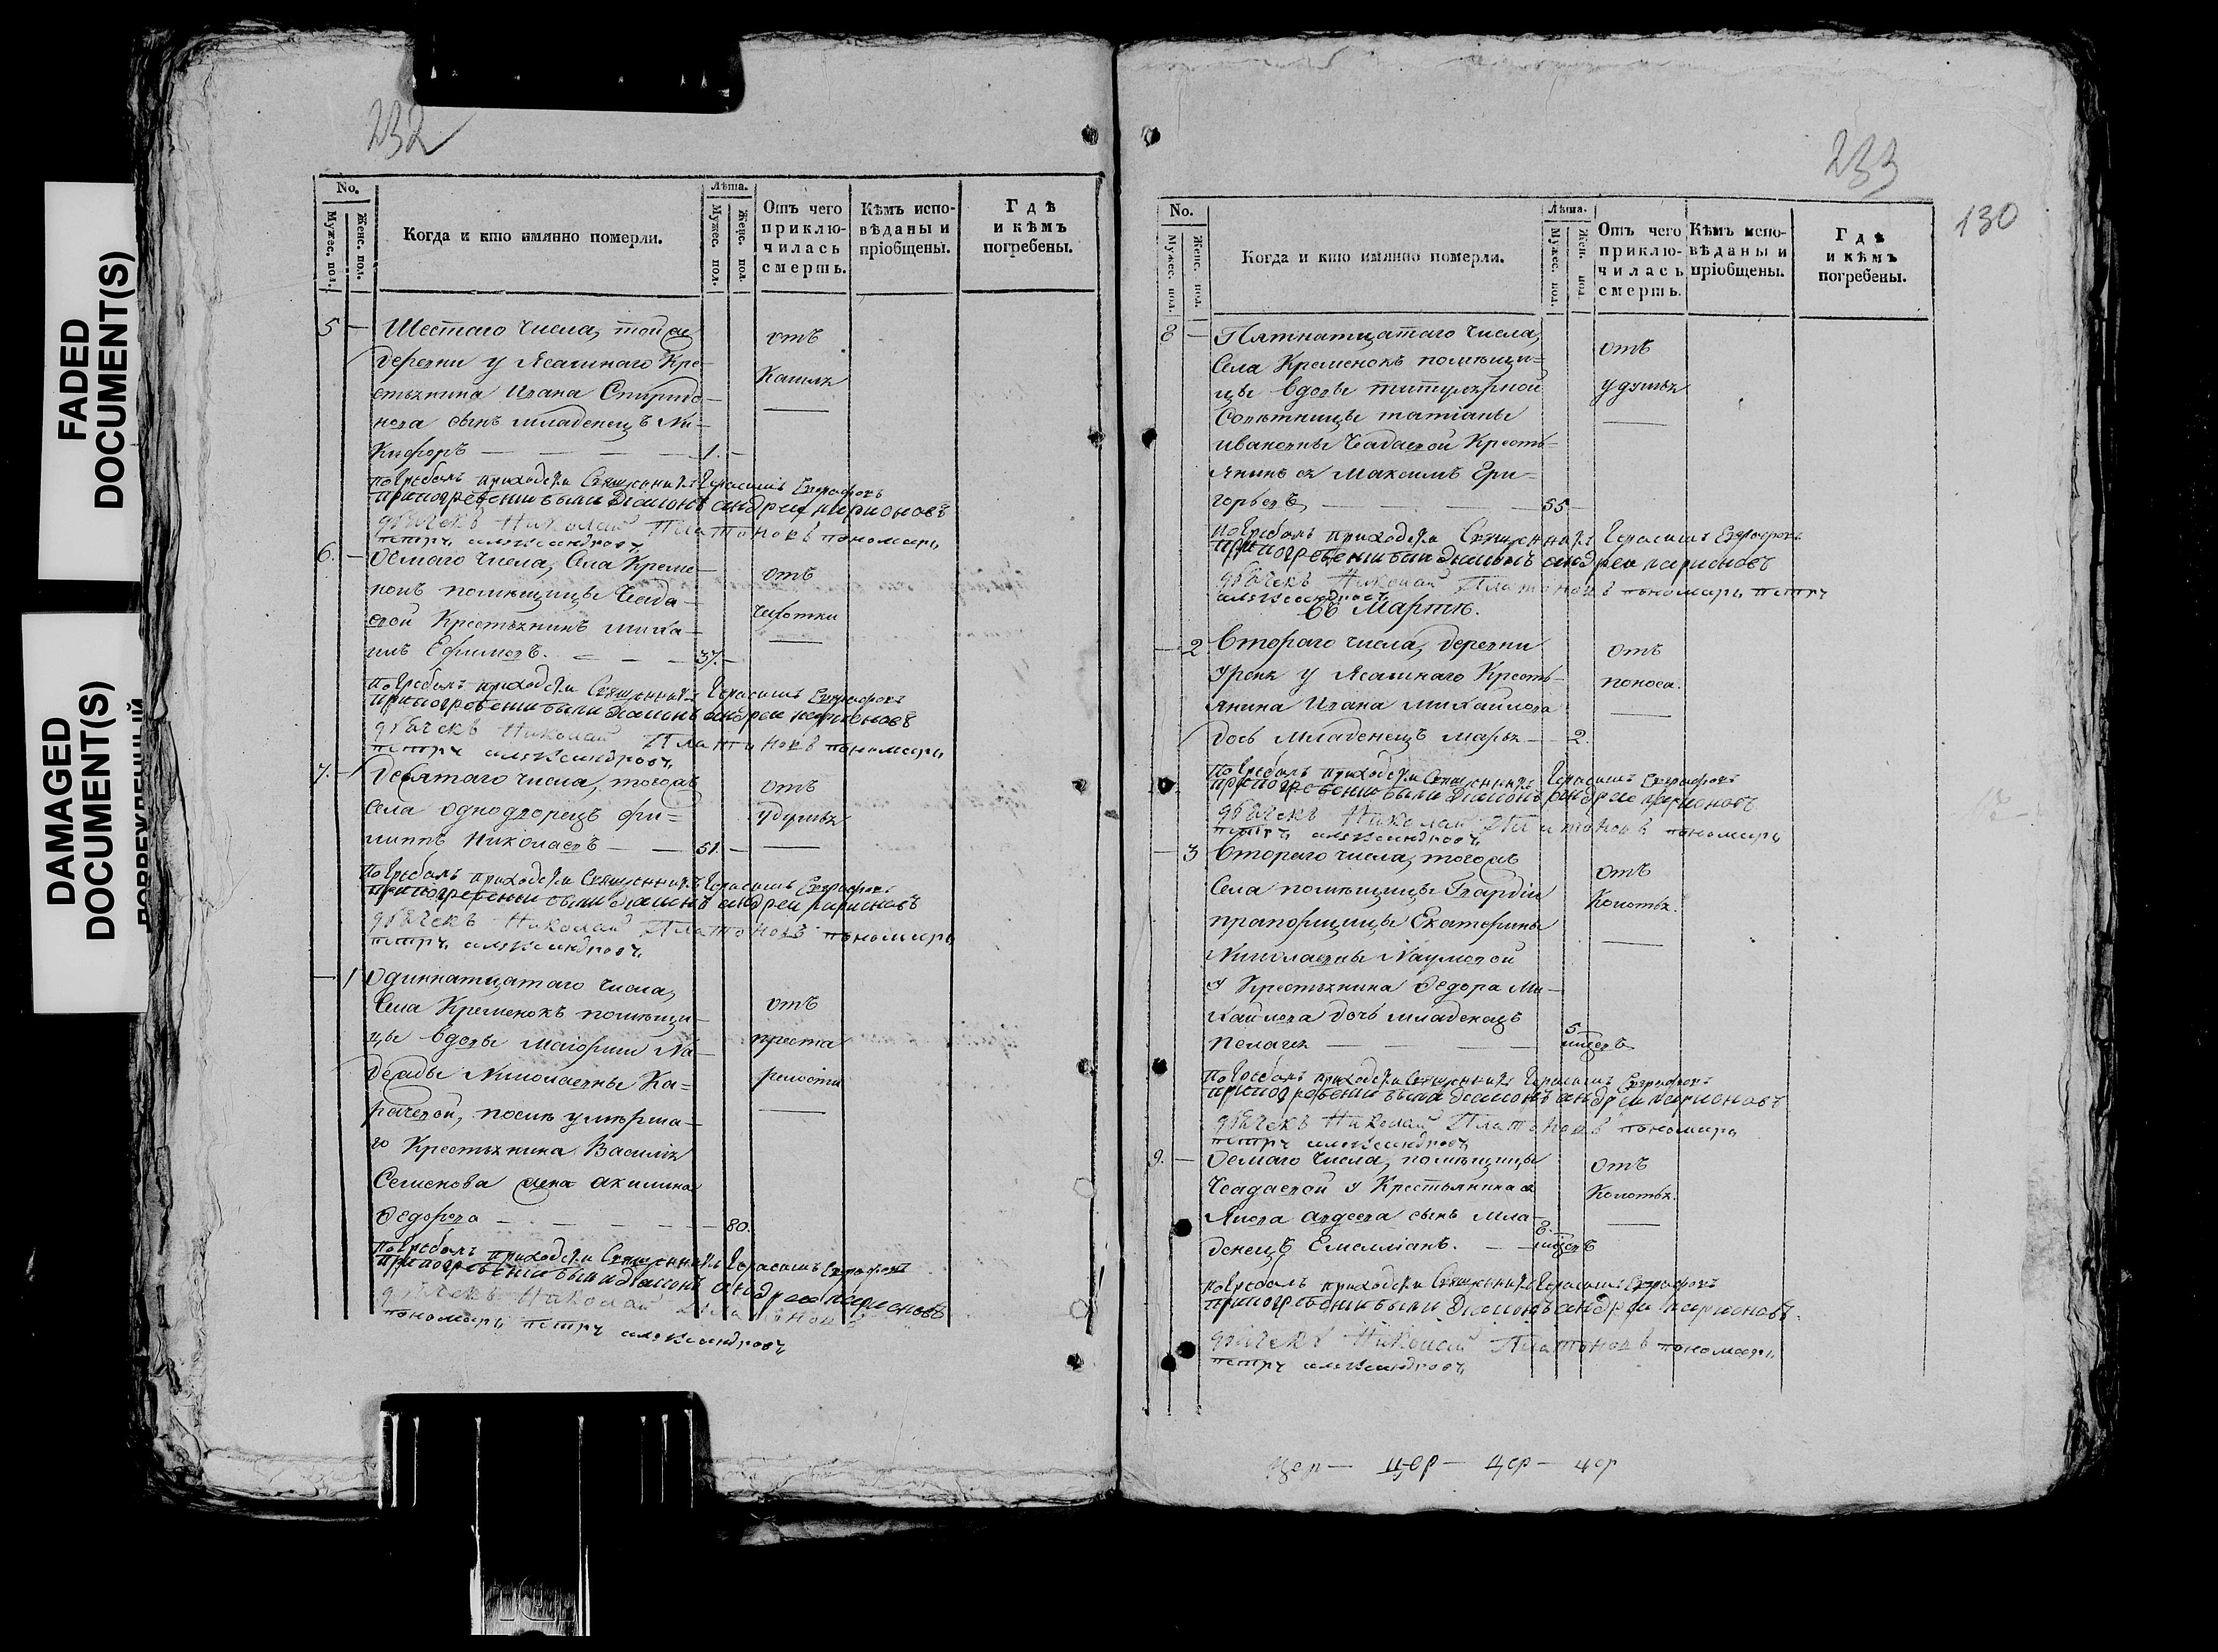 FADED
DOCUMENT(S)
DAMAGED
DOCUMENT(S)
232
No.
Мужес. пол.
Женс. пол.
Когда и кто имянно померли.
Лѣта.
Мужес. пол.
Женс. пол.
Отъ чего приклю-
чилась
смерть.
Кѣмъ испо-
вѣданы и
пріобщены.
Гдѣ
и кѣмъ
погребены.
5 — Шестаго числа, той же
деревни у Ясашнаго Кре-
стьянина Ивана Спиридо-
нова сынъ младенецъ Ни-
кифоръ — 1. —
отъ
Кашля
погребалъ приходскій Священникъ Герасимъ Евграфовъ
при погребении были Діаконъ андрей ларионовъ
дьячекъ Николай Платоновъ пономарь
петръ александровъ
6. — Осмаго числа, Села Креме-
нокъ помѣщицы Чеада-
евой Крестьянинъ Миха-
илъ Ефимовъ. — 37. —
отъ
Чехотки
погребалъ приходскій Священникъ Герасимъ Евграфовъ
при погребении были Діаконъ андрей ларионовъ
дьячекъ Николай Платоновъ пономарь
петръ александровъ
7. — Девятаго числа, тогожъ
Села однодворецъ Фи-
липпъ Николаевъ — 51. —
отъ
погребалъ приходскій Священникъ Герасимъ Евграфовъ
при погребении были Діаконъ андрей ларионовъ
дьячекъ Николай Платоновъ пономарь
петръ александровъ
— 1 Одиннатцатаго числа,
Села Кременокъ помѣщи-
цы вдовы Маіорши На-
дежды Николаевны Ка-
рачевой, послѣ умѣрша-
го Крестьянина Василья
Семенова жена акилина
Федорова — 80.
отъ
преста
релости
погребалъ приходскій Священникъ Герасимъ Евграфовъ
при погребении были діаконъ андрей ларионовъ
дьячекъ Николай Платоновъ
пономарь петръ александровъ
233
130
No.
Мужес. пол.
Женс. пол.
Когда и кто имянно померли.
Лѣта.
Мужес. пол.
Женс. пол.
Отъ чего
приклю-
чилась
смерть.
Кѣмъ испо-
вѣданы и
пріобщены.
Гдѣ
и кѣмъ
погребены.
8 — Пятнатцатаго числа,
Села Кременокъ помѣщи-
цы вдовы титулярной
Совѣтницы татіаны
ивановны Чеадаевой Кресть-
янинъ Максимъ Гри-
горьевъ — 55 —
отъ
удушья
погребалъ приходскій Священникъ Герасимъ Евграфовъ
при погребении были діаконъ андрей ларионовъ
дьячекъ Николай Платоновъ пономарь петръ
александровъ
Въ Мартѣ.
— 2 Втораго числа, деревни
Урена у Ясашнаго Кресть-
янина Ивана Михайлова
дочь младенецъ Марья — 2.
отъ
поноса.
погребалъ приходскій Священникъ Герасимъ Евграфовъ
при погребении были Діаконъ андрей ларионовъ
дьячекъ Николай Платоновъ пономарь
петръ александровъ
— 3 Втораго числа, тогожъ
Села помѣщицы Гвардіи
прапорщицы Екатерины
Николаевны Наумовой
у Крестьянина Федора Ми-
хайлова дочь младенецъ
пелагея — 5 мцовъ
отъ
Колотья.
погребалъ приходскій Священникъ Герасимъ Евграфовъ
при погребении были діаконъ андрей ларионовъ
дьячекъ Николай Платоновъ пономарь
петръ александровъ
9. — Осмаго числа, помѣщицы
Чеадаевой у Крестьянина
Якова авдеева сынъ мла-
денецъ Емелліанъ. — 8. мцовъ
отъ
Колотья.
погребалъ приходскій Священникъ Герасимъ Евграфовъ
при погребении были Діаконъ андрей ларионовъ.
дьячекъ Николай Платоновъ пономарь
петръ александровъ